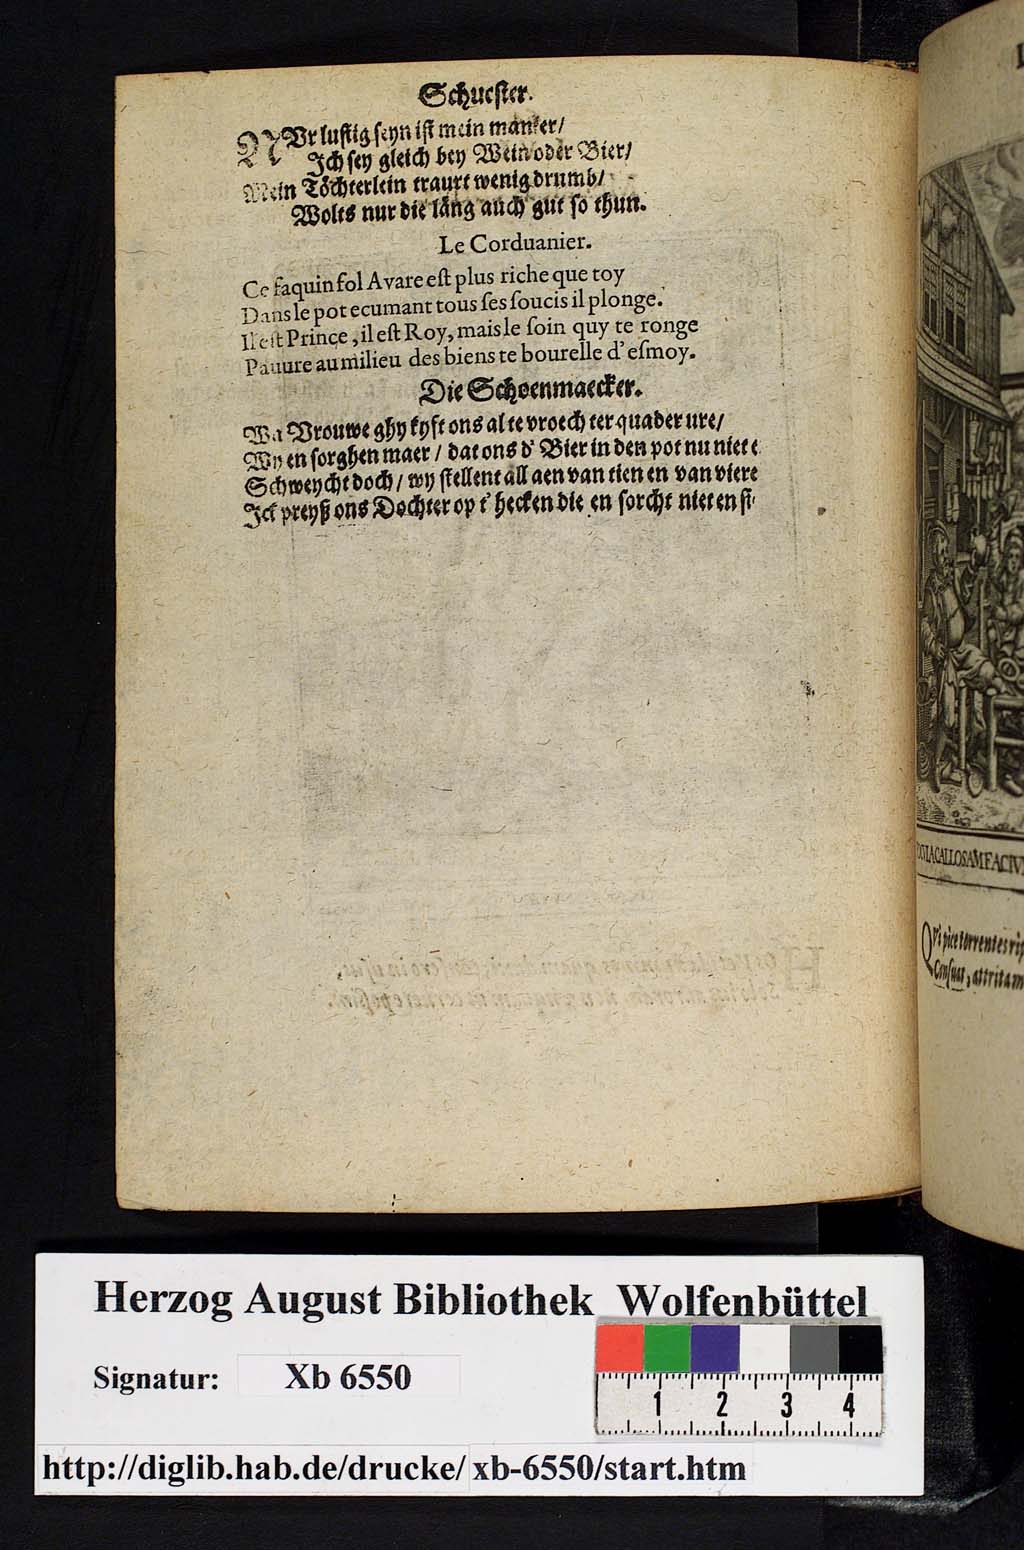 Schuester.
NVr lustig seyn ist mein manier/
Ich sey gleich bey Wein oder Bier/
Mein Töchterlein traurt wenig drumb/
Wolts nur die läng auch gut so thun.
Le Corduanier.
Ce faquin fol Avare est plus riche que toy
Dans le pot ecumant tous ses soucis il plonge.
Il est Prince, il est Roy, mais le soin quy te ronge
Pauure au milieu des biens te bourelle d'esmoy.
Die Schoenmaecker.
Wa Vrouwe ghy kyft ons al te vroech ter quader ure/
Wy en sorghen maer / dat ons d' Bier in den pot nu niet e
Schweycht doch / wy stellent all aen van tien en van viere
Ick preyß ons Dochter op t' hecken die en sorcht niet en si
VIA CALLOSAM FACIV
Qvi pice torrentes rip
Consuat, attritam
Herzog August Bibliothek Wolfenbüttel
Signatur: Xb 6550
1 2 3 4
http://diglib.hab.de/drucke/xb-6550/start.htm